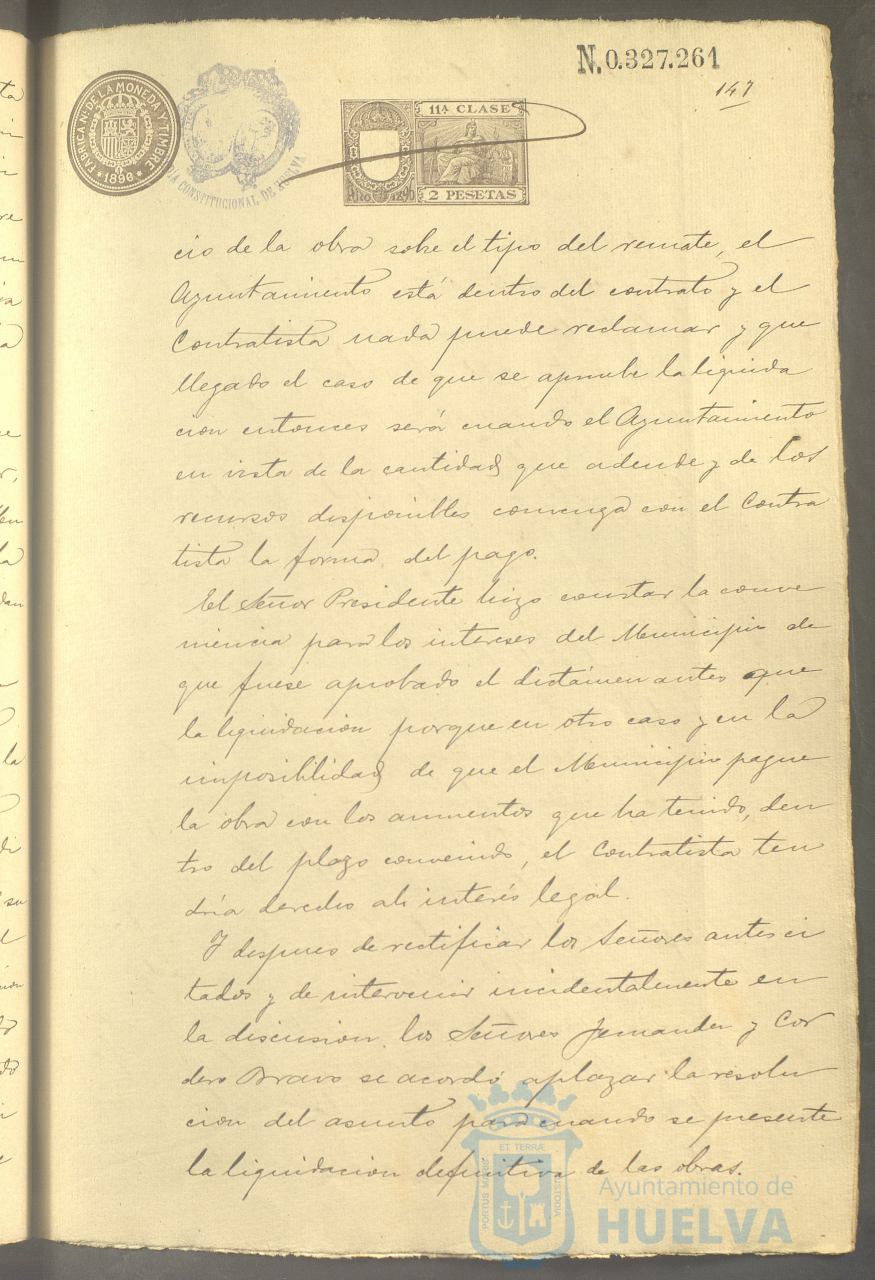 N. 0.327.261
147
FABRICA NL DE LA MONEDA Y TIMBRE
* 1890 *
CONSTITUCIONAL DE HUELVA
11ª CLASE
AÑO 1890
2 PESETAS
cio de la obra sobre el tipo del remate, el
Ayuntamiento está dentro del contrato y el
Contratista nada puede reclamar y que
llegado el caso de que se apruebe la liquida
cion entonces será cuando el Ayuntamiento
en vista de la cantidad que adeude y de los
recursos disponibles convenga con el Contra
tista la forma del pago.
El Señor Presidente hizo constar la conve
niencia para los intereses del Municipio de
que fuese aprobado el dictámen antes que
la liquidacion porque en otro caso y en la
imposibilidad de que el Municipio pague
la obra con los aumentos que ha tenido, den
tro del plazo convenido, el Contratista ten
dría derecho al interés legal.
Y despues de rectificar los Señores antes ci
tados y de intervenir incidentalmente en
la discusion los Señores Fernandez y Cor
dero Bravo se acordó aplazar la resolu
cion del asunto para cuando se presente
la liquidacion definitiva de las obras.
PORTUS MARIS
ET TERRÆ
CUSTODIA
Ayuntamiento de
HUELVA